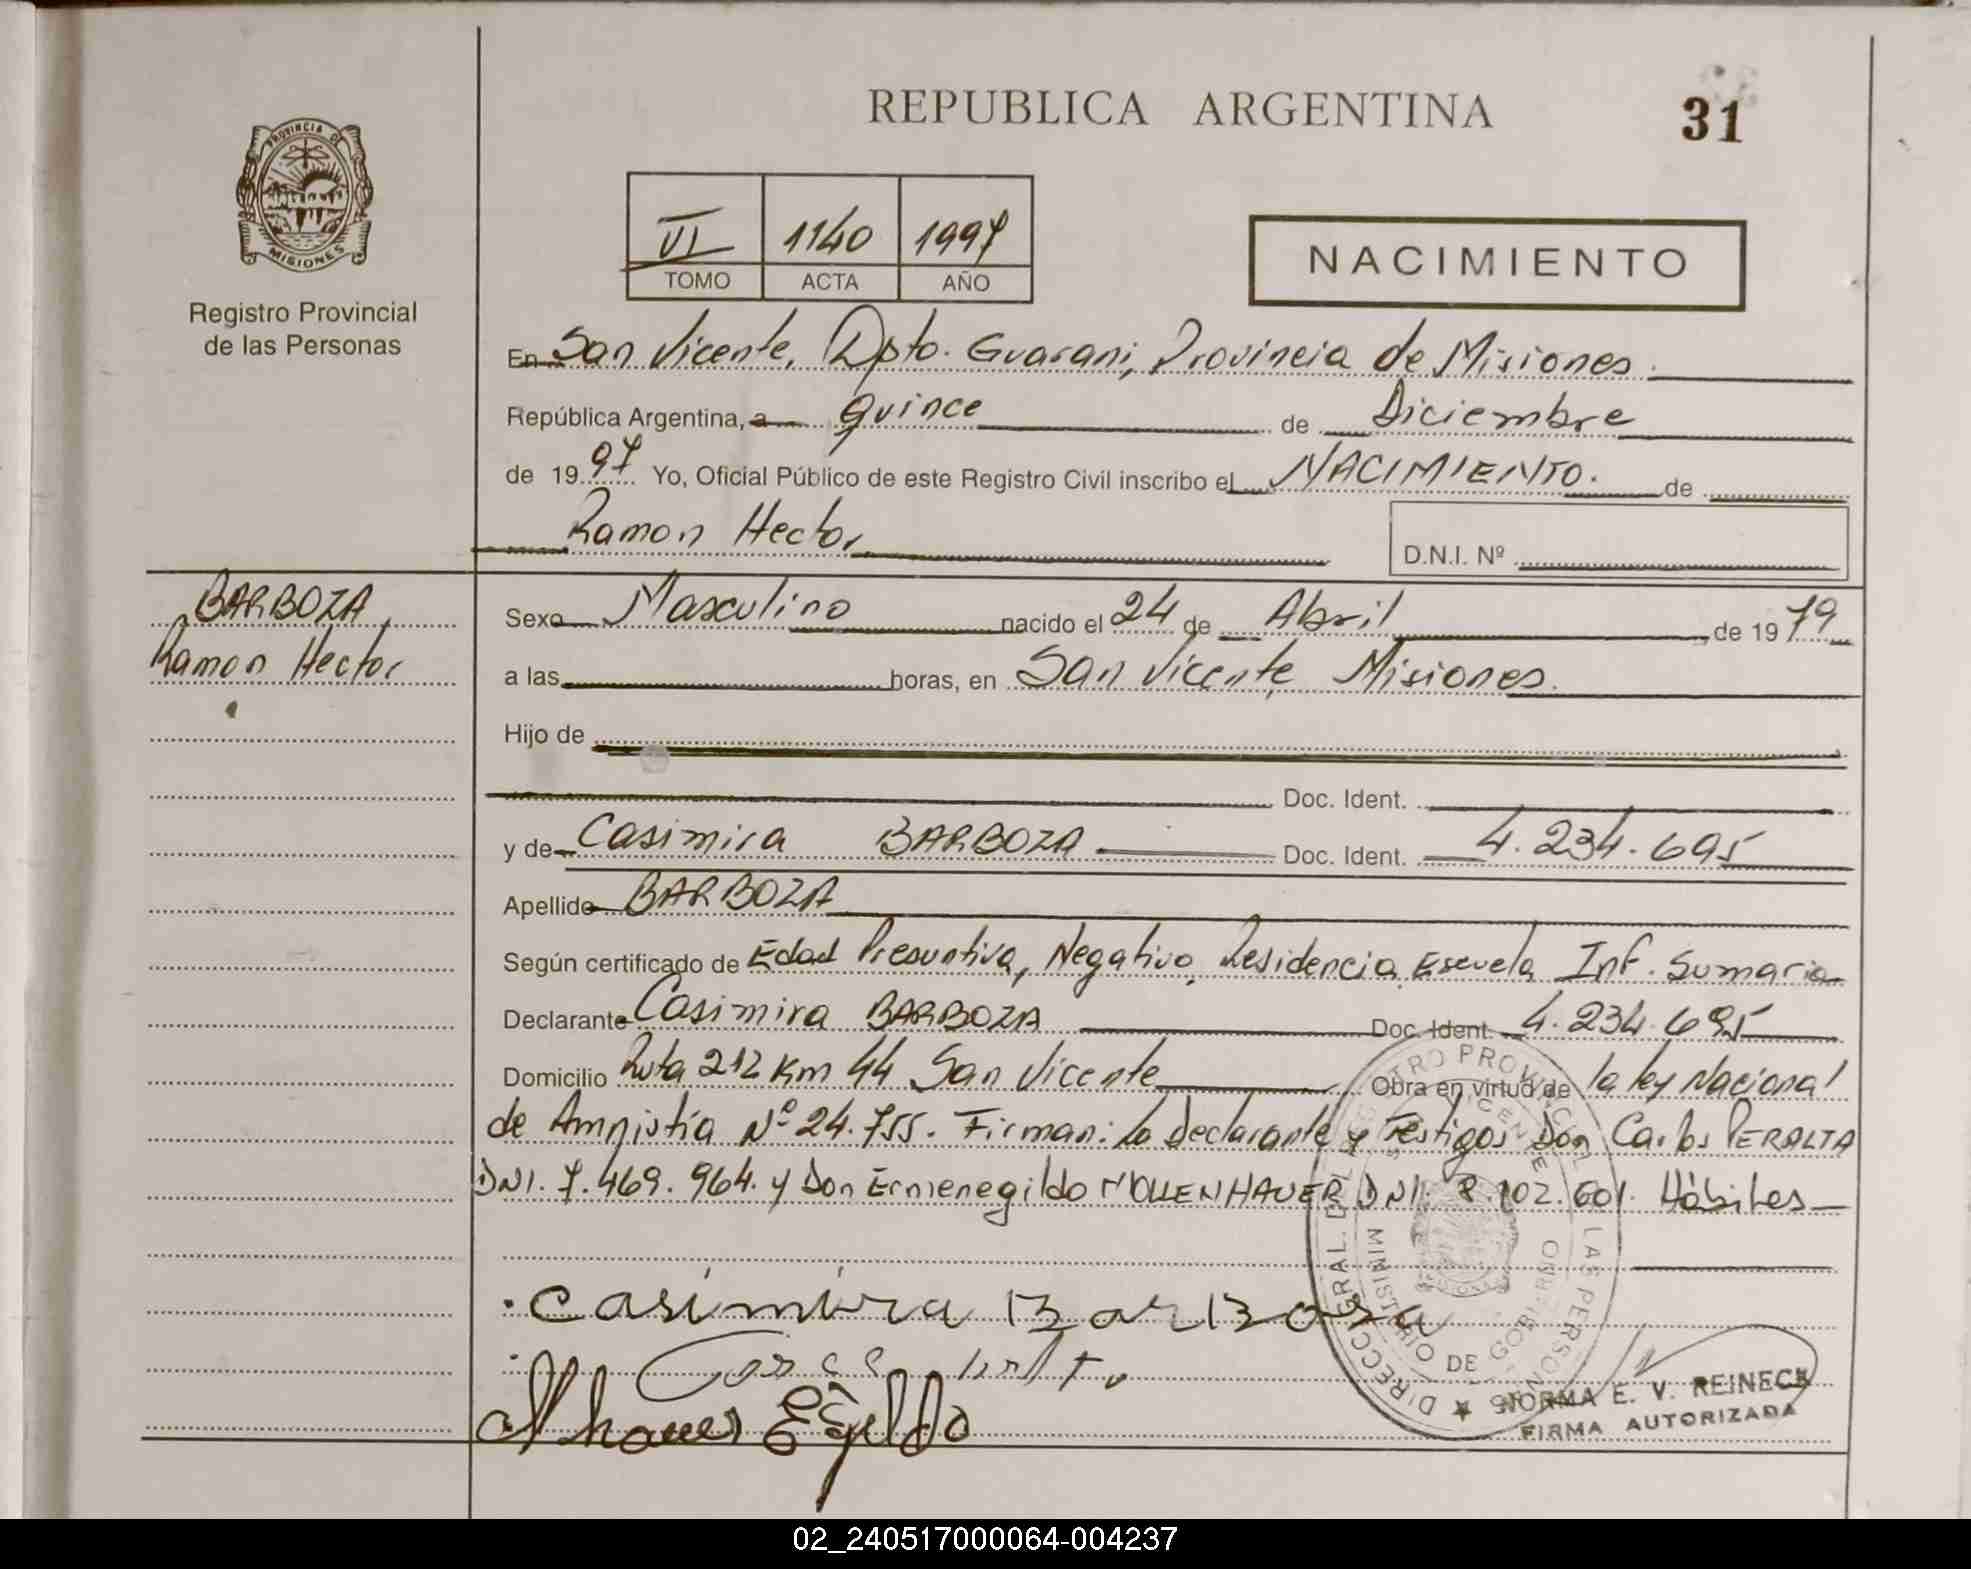 REPUBLICA ARGENTINA
31
PROVINCIA DE
MISIONES
Registro Provincial
de las Personas
VI 1140 1997
TOMO ACTA AÑO
NACIMIENTO
En San Vicente, Dpto. Guarani, Provincia de Misiones.
República Argentina, a quince de Diciembre
de 1997 Yo, Oficial Público de este Registro Civil inscribo el NACIMIENTO. de
Ramon Hector
D.N.I. Nº
BARBOZA
Ramon Hector
Sexo Masculino nacido el 24 de Abril de 1979
a las horas, en San Vicente Misiones.
Hijo de
Doc. Ident.
y de Casimira BARBOZA Doc. Ident. 4.234.695
Apellido BARBOZA
Según certificado de Edad Presuntiva, Negativo, Residencia, Escuela Inf. Sumaria
Declarante Casimira BARBOZA Doc. Ident. 4.234.695
Domicilio Ruta 212 Km 44 San Vicente Obra en virtud de la ley Nacional
de Amnistía Nº 24.755. Firman: la declarante y Testigos Don Carlos PERALTA
DNI. 7.469.964. y Don Ermenegildo MOLLENHAUER DNI. 8.102.601. Hábiles
Casimira Barboza
DIRECC. GRAL. DEL REGISTRO PROVINCIAL DE LAS PERSONAS
MINISTERIO DE GOBIERNO
SAN VICENTE
NORMA E. V. REINECK
FIRMA AUTORIZADA
02_240517000064-004237